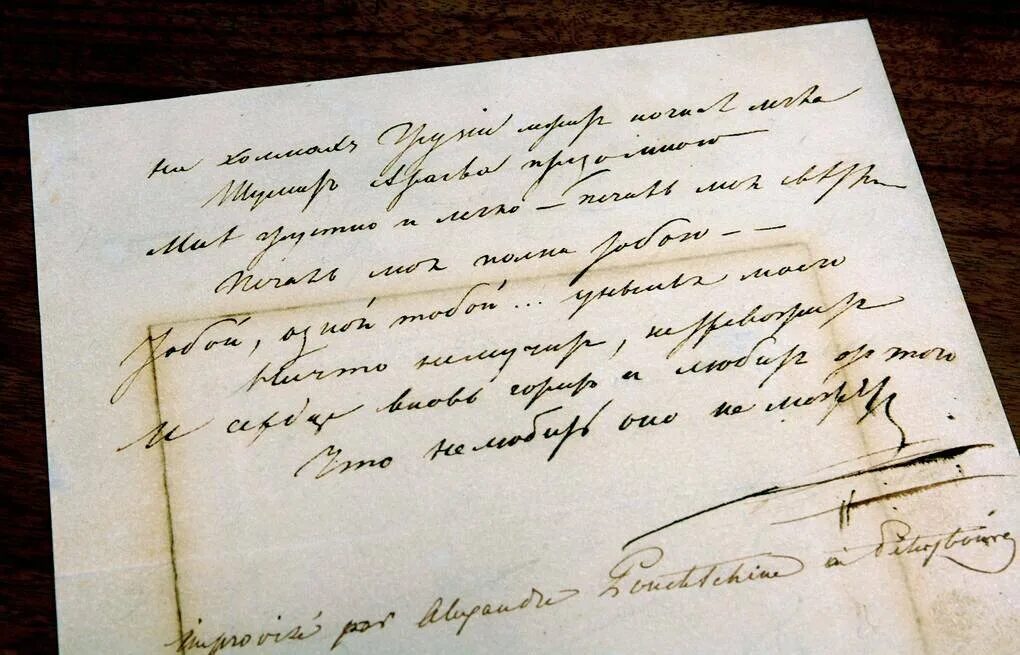 на холмахъ Грузіи лежит ночная мгла
Шумитъ Арагва предомною
Мнѣ грустно и легко — печаль моя свѣтла
Печаль моя полна тобою — —
Тобой, одной тобой... унынья моего
Ничто немучит, нетревожит
И сердце вновь горитъ и любит от того
Что нелюбить оно не может
improvisé par Alexandre Pouchtchine à Pétersbourg